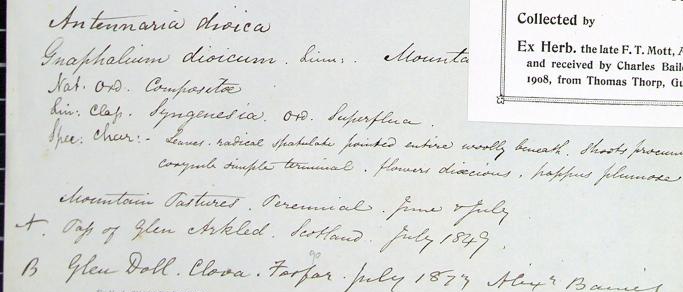 Antennaria dioica
Gnaphalium dioicum. Linn:. Mounta
Nat: Ord. Compositæ
Lin: Clas. Syngenesia. Ord. Superflua.
Spec: Char:- Leaves. radical spatulate pointed entire woolly beneath. Shoots procum
corymb simple terminal, flowers diœcious, pappus plumose
Mountain Pastures. Perennial. June & July
A. Pass of Glen Arkled. Scotland. July 1849.
B Glen Doll. Clova. Forfar. July 1877 Alexr
Collected by
Ex Herb. the late F. T. Mott,
and received by Charles Baile
1908, from Thomas Thorp, Gu